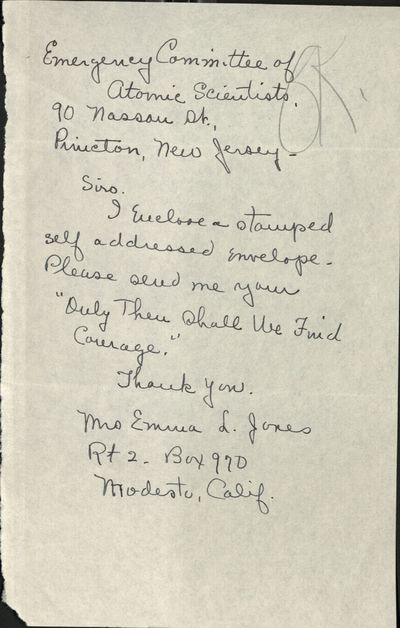 Emergency Committee of
Atomic Scientists,
90 Nassau St.,
Princton, New Jersey-
Sirs.
I Enclose a stamped
self addressed Envelope-
Please send me your
"Only Then Shall We Find
Courage."
Thank You.
Mrs Emma L. Jones
Rt 2- Box 970
Modesto, Calif.